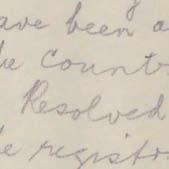 ave been a
he countr
Resolved
he registr